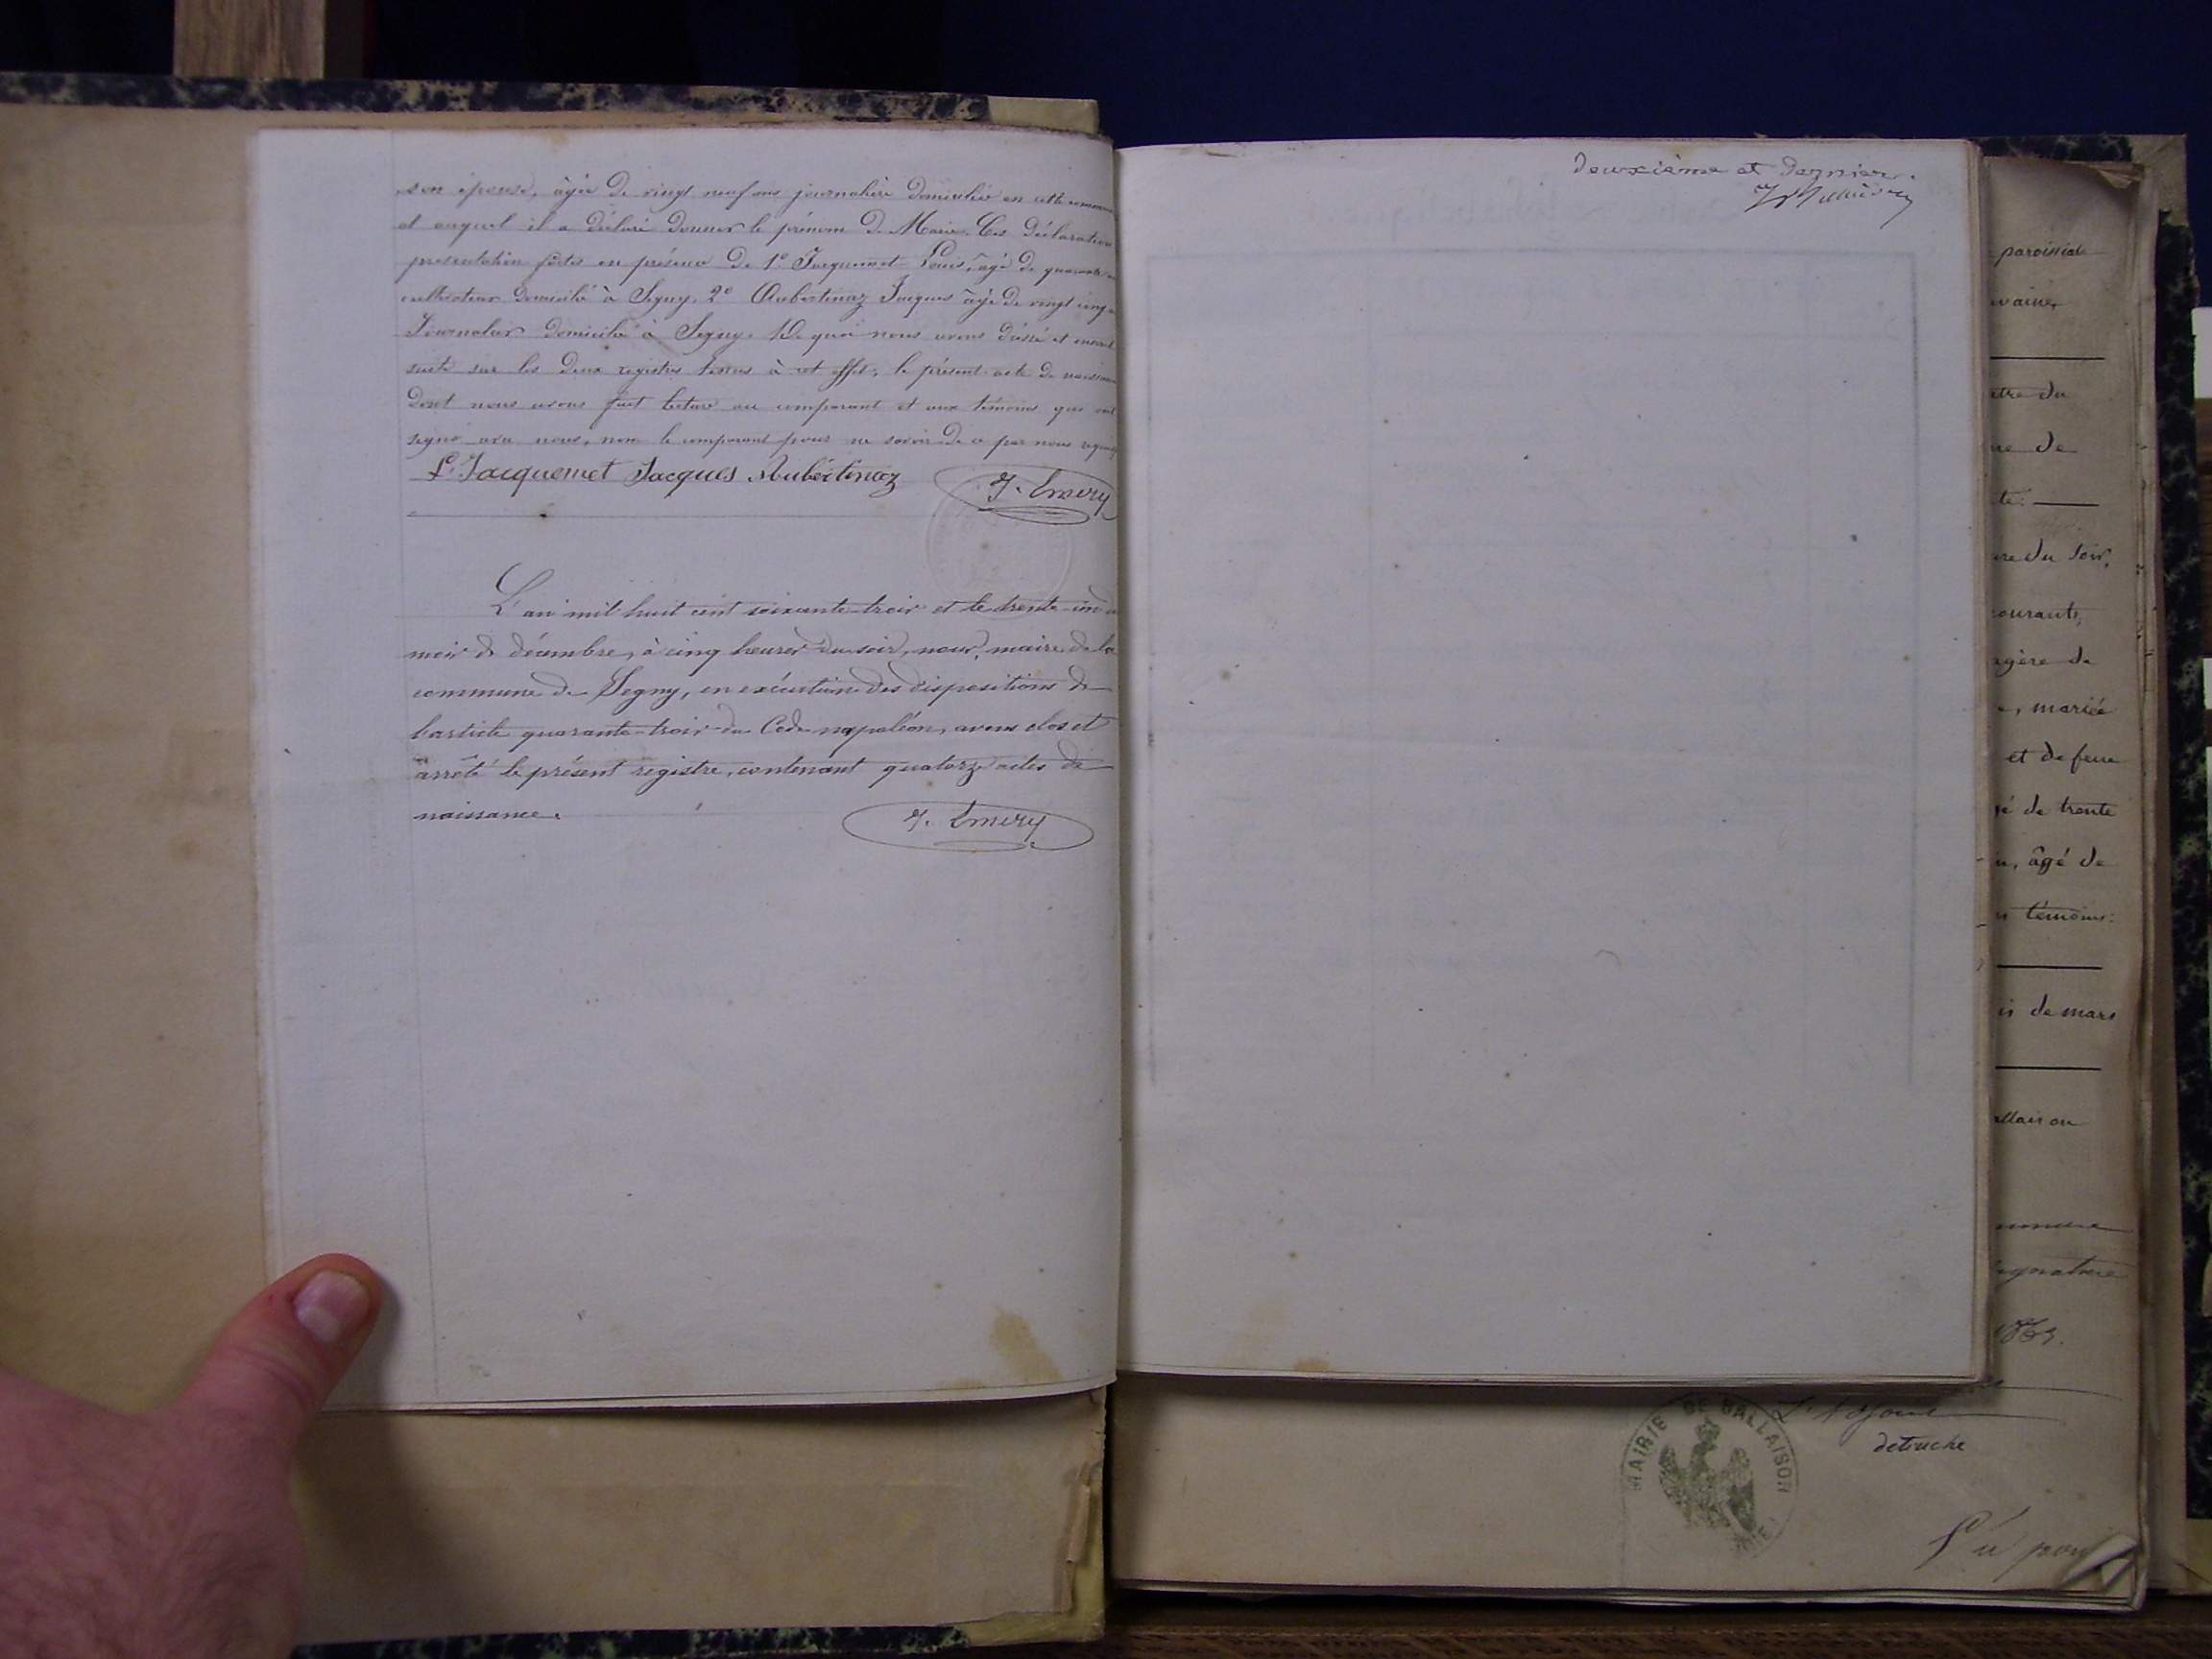 son épouse, âgée de vingt neuf ans journalière domiciliée en cette commune
et auquel il a déclaré donner le prénom de Marie. Ces déclaration
présentation faites en présence de 1° Jacquemet Louis, âgé de quarante
cultivateur domicilié à Segny, 2° Aubertinaz Jacques âgé de vingt cinq
Journalier domicilié à Segny. De quoi nous avons dressé et
suite sur les deux registres tenus à cet effet, le présent acte de naissance
Dont nous avons fait lecture au comparant et aux témoins qui ont
signé avec nous, non le comparant pour ne savoir de ce par nous requis
Ls Jacquemet Jacques Aubértinaz
J. Emery
L'an mil huit cent soixante-trois et le trente-un
mois de décembre, à cinq heures du soir, nous, maire de la
commune de Segny, en exécution des dispositions de
l'article quarante-trois du Code napoléon, avons clos et
arrêté le présent registre, contenant quatorze actes de
naissance.
J. Emery
Deuxième et Dernier.
paroissial
être du
de
te:
du soir,
courant,
de
, mariée
et de feue
gé de trente
, âgé de
témoins:
is de mars
signature
1863.
MAIRIE DE BALLAISON
detruche